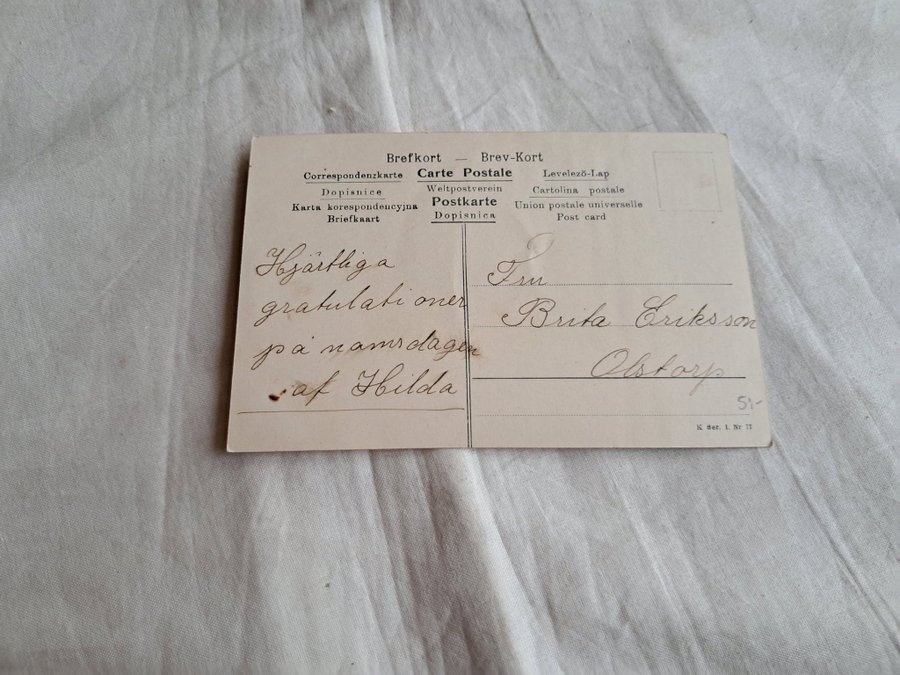 Brefkort — Brev-Kort
Correspondenzkarte Carte Postale Levelező-Lap
Dopisnice Weltpostverein Cartolina postale
Karta korespondencyjna Postkarte Union postale universelle
Briefkaart Dopisnica Post card
Hjärtliga
gratulationer
på namsdagen
af Hilda
Fru
Brita Eriksson
Olstorp
5:-
K. Ser. 1. Nr 77